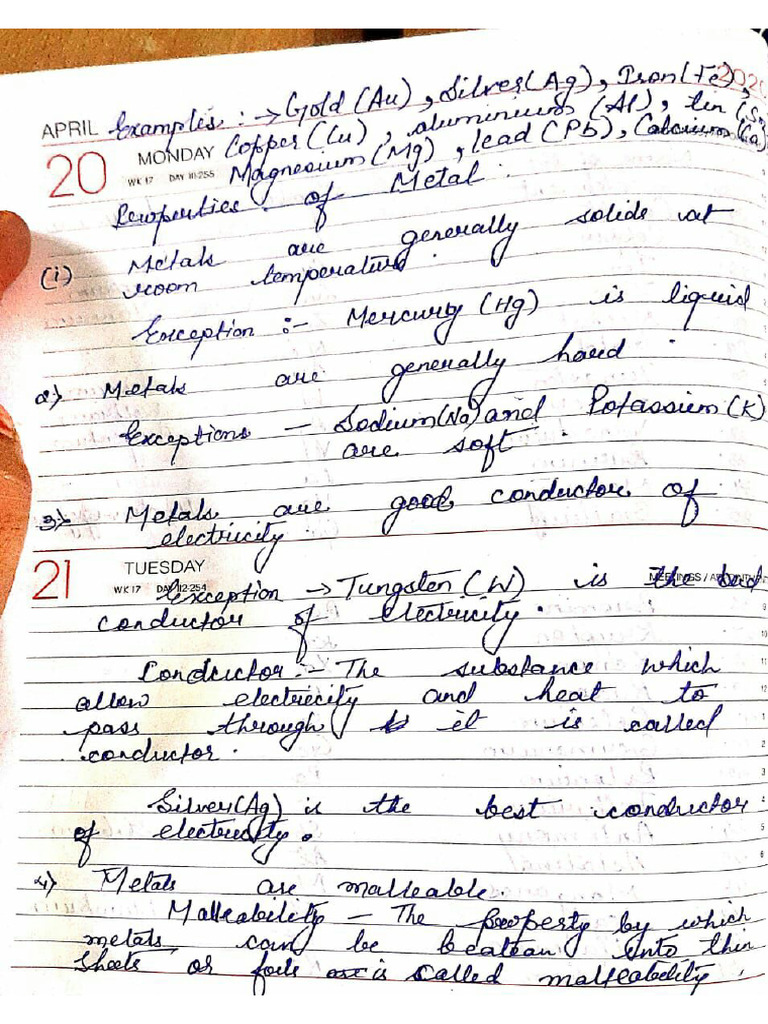 2020
APRIL Examples :→ Gold (Au), Silver (Ag), Iron (Fe),
20 MONDAY Copper (Cu), aluminium (Al), tin (Sn)
WK 17 DAY 111-255 Magnesium (Mg), lead (Pb), Calcium (Ca)
Properties of Metal.
(i) Metals are generally solids at
room temperature.
Exception :- Mercury (Hg) is liquid
2) Metals are generally hard.
Exceptions - Sodium (Na) and Potassium (K)
are soft.
3) Metals are good conductor of
electricity.
21 TUESDAY
WK 17 DAY 112-254 Exception → Tungsten (W) is the bad
conductor of electricity.
Conductor :- The substance which
allow electricity and heat to
pass through it is called
conductor.
Silver (Ag) is the best conductor
of electricity.
4) Metals are malleable
Malleability - The property by which
metals can be beaten into thin
sheets or foils is called malleability.